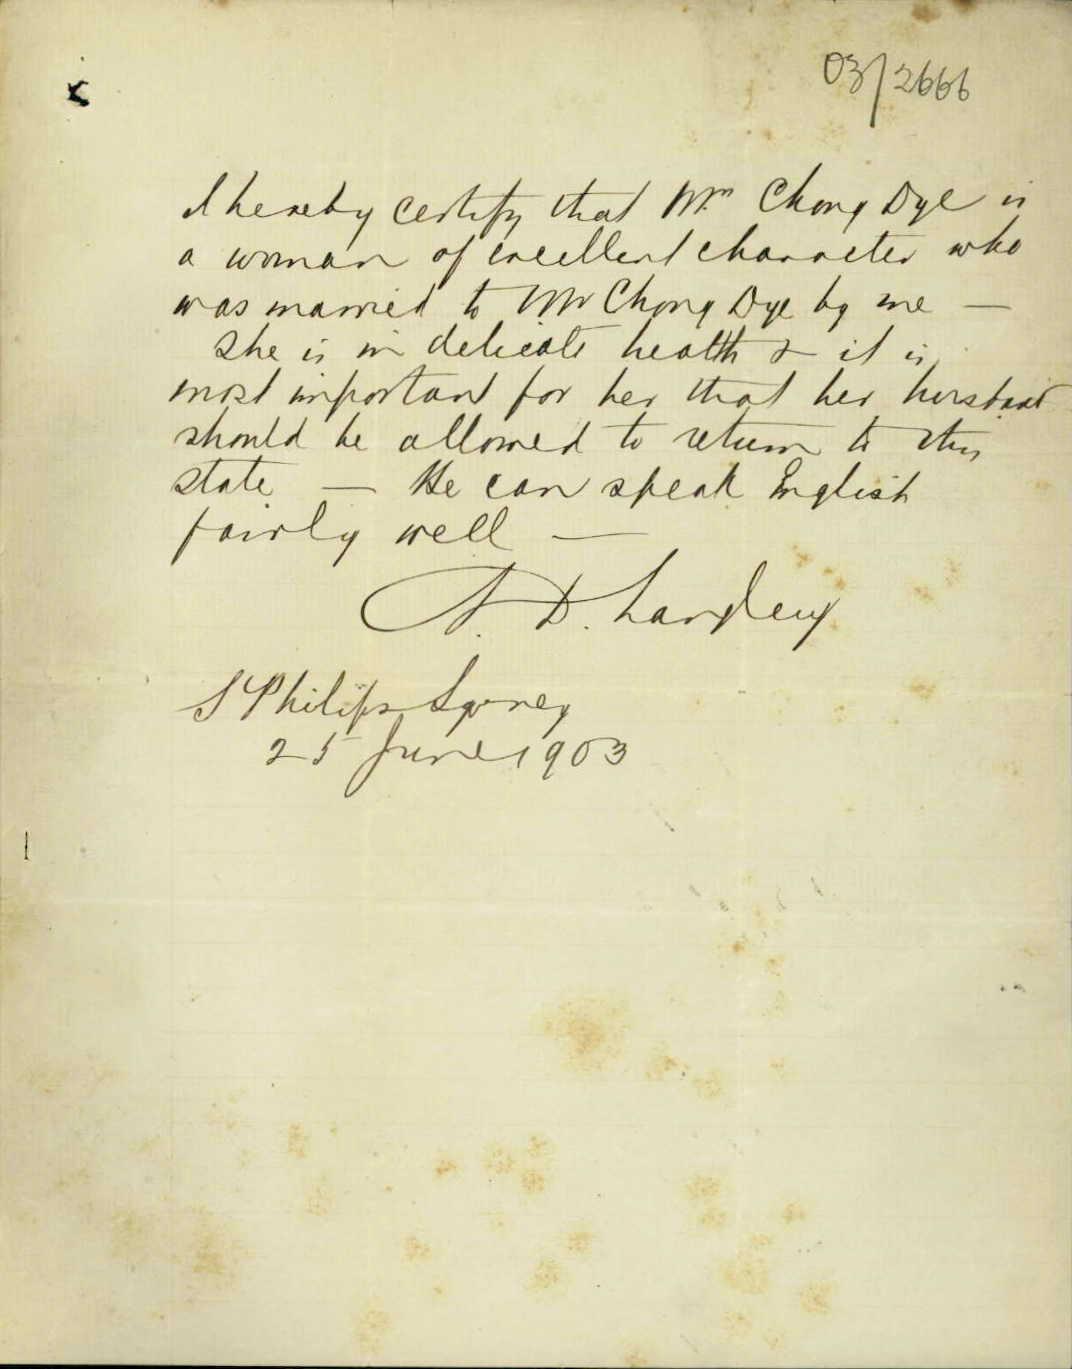 03/2666
I hereby certify that Mrs Chong Dye is
a woman of excellent character who
was married to Mr Chong Dye by me —
She is in delicate health & it is
most important for her that her husband
should be allowed to return to this
state — He can speak English
fairly well —
D. Langley
S Philips Sydney
25 June 1903